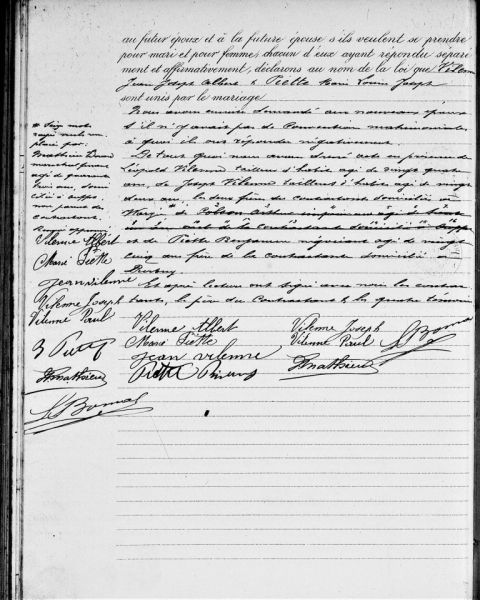 au futur époux et à la future épouse s'ils veulent se prendre
pour mari et pour femme, chacun d'eux ayant répondu séparé
ment et affirmativement, déclarons au nom de la loi que Vilenne
Jean Joseph Albert & Piette Marie Louise Joseph
sont unis par le mariage.
Nous avons ensuite demandé aux nouveaux époux
s'il n'y avait pas de Convention matrimoniale
à quoi ils ont répondu négativement.
De tout quoi nous avons dressé acte en présence de
Léopold Vilenne tailleur d'habits agé de vingt quatre
ans, de Joseph Vilenne tailleur d'habits agé de vingt
deux ans, les deux frères du contractant domiciliés à
et de Piette Benjamin négociant agé de vingt
cinq ans frère de la contractante domicilié à
Durbuy.
Et après lecture ont signé avec nous les contrac
tants, le père du Contractant & les quatre témoins
* Six mots
rayés nuls
placé par
Mathieu
agé de quarante
trois ans, domi
cilié à
non parent des
contractants.
Vilenne Albert
Marie Piette
Jean Vilenne
Vilenne Joseph
Vilenne Paul
B Piette
Hmathieu
Vilenne Albert
Marie Piette
Jean Vilenne
Piette
Vilenne Joseph
Vilenne Paul
Hmathieu